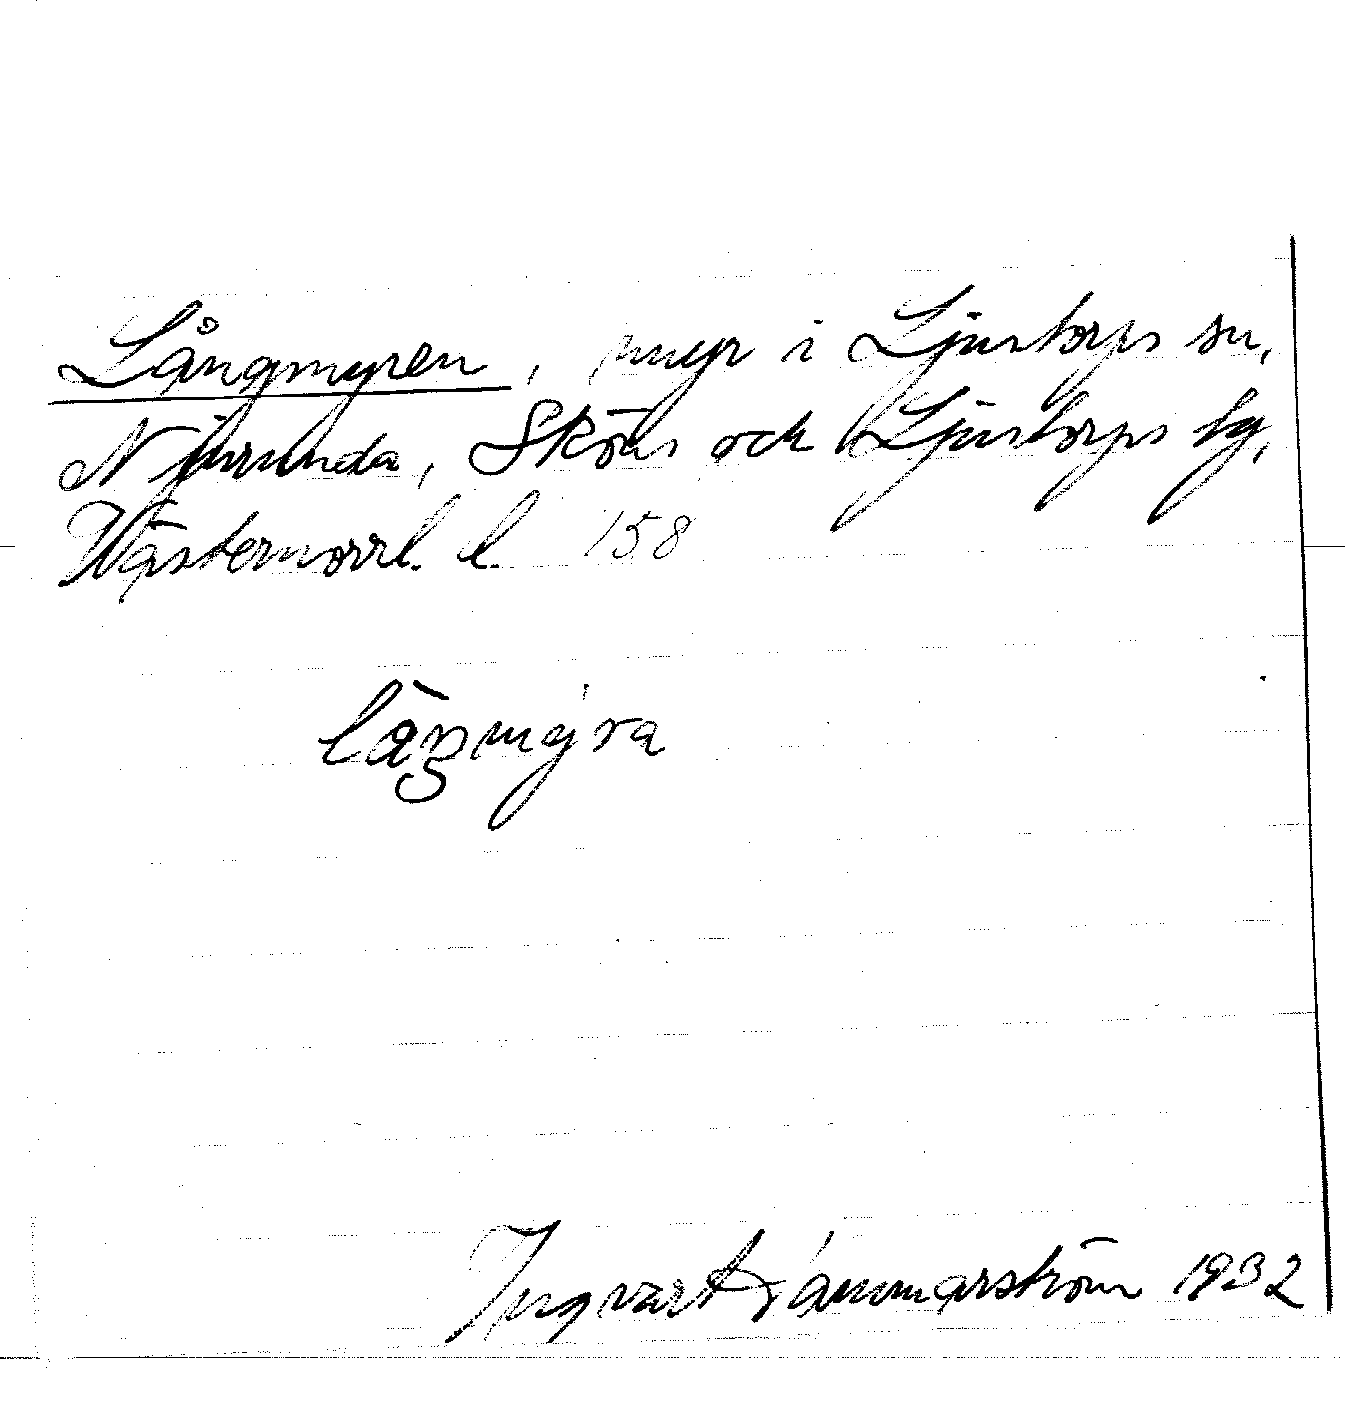 Långmyren, myr i Ljustorps sn,
Njurunda, Sköns och Ljustorps tg,
Västernorrl. l. 158
Ingvart Hammarström 1932